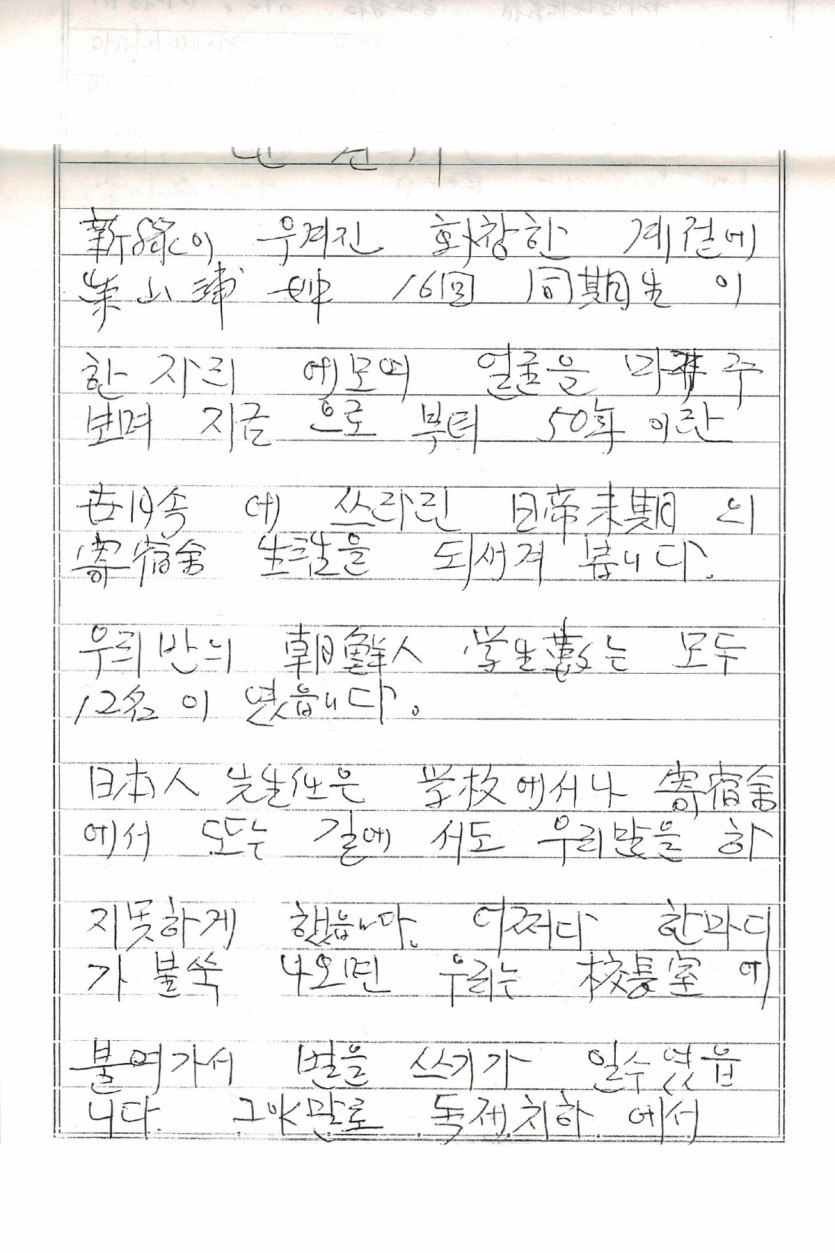 新綠이 우겨진 화창한 계절에
16回 同期生 이
한 자리 에모여 얼굴을 마주
보며 지금 으로 부터 50年 이란
歲月속 에 쓰라린 日帝末期 의
寄宿舍 生活을 되새겨 봅니다.
우리반의 朝鮮人 学生數는 모두
12名 이 였읍니다.
日本人 先生任은 学校에서나 寄宿舍
에서 또는 길에 서도 우리말을 하
지못하게 했읍니다. 어쩌다 한마디
가 불쑥 나오면 우리는 校長室 에
불여가서 벌을 쓰기가 일수였읍
니다. 그야말로 독제치하 에서